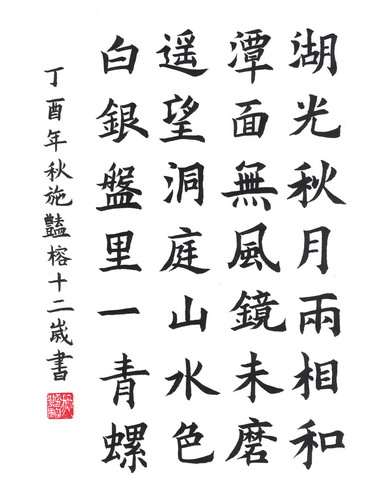 湖光秋月兩相和
潭面無風鏡未磨
遥望洞庭山水色
白銀盤里一青螺
丁酉年秋施豔榕十二歲書